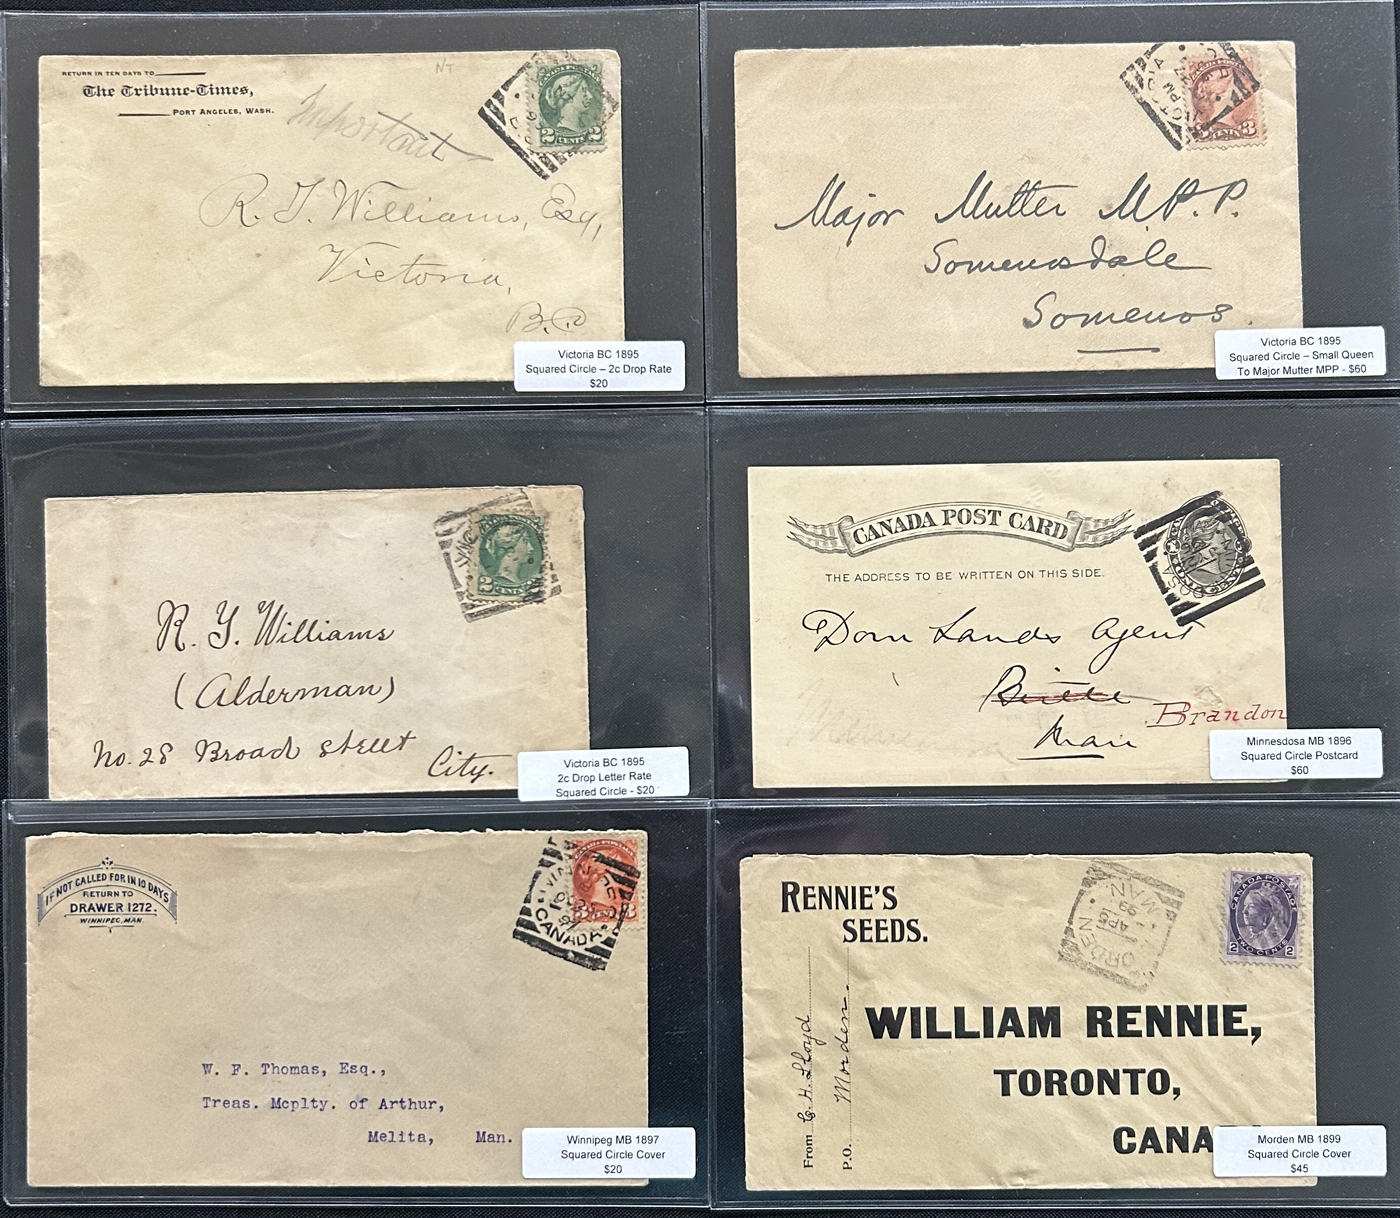 RETURN IN TEN DAYS TO
The Tribune-Times,
PORT ANGELES, WASH.
NT
Important
2 CENTS 2
R. T. Williams, Esq,
Victoria,
B.C.
Victoria BC 1895
Squared Circle – 2c Drop Rate
$20
PM
3
Major Mutter M.P.P.
Somenosdale
Somenos.
Victoria BC 1895
Squared Circle – Small Queen
To Major Mutter MPP - $60
2 CENTS
R. T. Williams
(Alderman)
No. 28 Broad Street
City.
Victoria BC 1895
2c Drop Letter Rate
Squared Circle - $20
CANADA POST CARD
THE ADDRESS TO BE WRITTEN ON THIS SIDE.
Dom Lands Agent
Birtle
Brandon
Man
Minnesdosa MB 1896
Squared Circle Postcard
$60
IF NOT CALLED FOR IN 10 DAYS
RETURN TO
DRAWER 1272.
WINNIPEG, MAN.
CANADA
W. F. Thomas, Esq.,
Treas. Mcplty. of Arthur,
Melita, Man.
Winnipeg MB 1897
Squared Circle Cover
$20
RENNIE'S
SEEDS.
ORDEN
AP
99
MAN.
CANADA POSTAGE
2 TWO CENTS 2
From C. H. Lloyd
P.O. Morden.
WILLIAM RENNIE,
TORONTO,
CANA
Morden MB 1899
Squared Circle Cover
$45